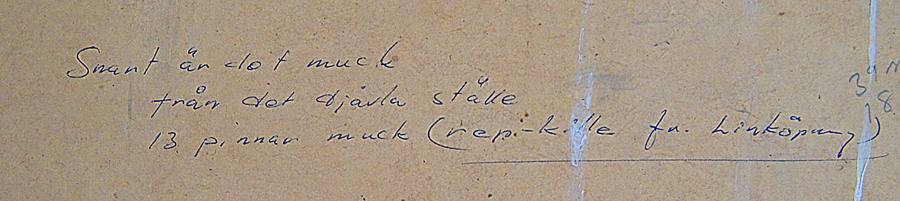 Snart är det muck
från det djävla ställe
13 pinnar muck (rep.-kille fr. Linköping)
39
8